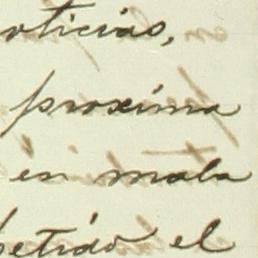 oticias,
proxima
en mala
petido el